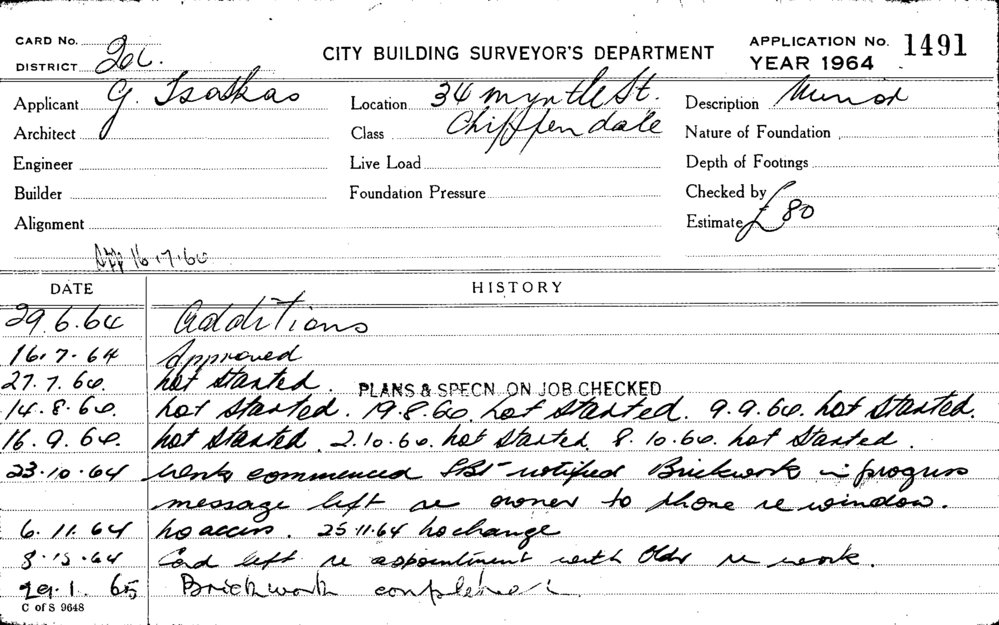 CARD No.
DISTRICT
CITY BUILDING SURVEYOR'S DEPARTMENT
APPLICATION No. 1491
YEAR 1964
Applicant G. Tsaskas
Location 34 Myrtle St.
Description Minor
Architect
Class Chippendale
Nature of Foundation
Engineer
Live Load
Depth of Footings
Builder
Foundation Pressure
Checked by
Alignment
Estimate £80
App 16.7.64
DATE HISTORY
29.6.64 Additions
16.7.64 Approved
27.7.64 not started. PLANS & SPECN. ON JOB CHECKED
14.8.64. not started. 19.8.64 not started. 9.9.64. not started.
16.9.64. not started. 2.10.64. not started 8.10.64. not started.
23.10.64 work commenced notified Brickwork in progress
message left re owner to phone re window.
6.11.64 no access. 25.11.64 no change
Card left re appointment with Bldr re work.
29.1.65 Brickwork completed
C of S 9648